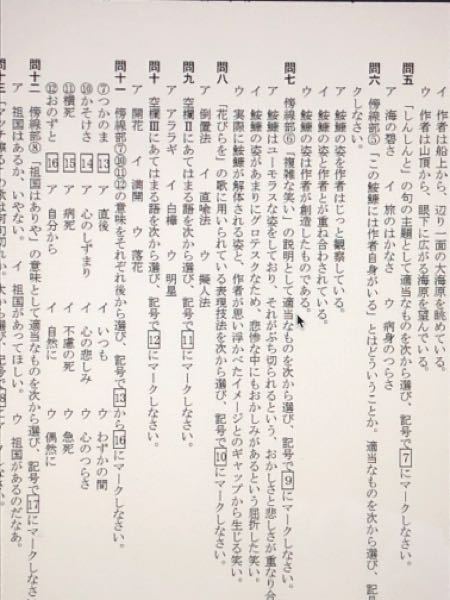 イ 作者は船上から、辺り一面の大海原を眺めている。
ウ 作者は山頂から、眼下に広がる海原を望んでいる。
問五 「しんしんと」の句の主題として適当なものを次から選び、記号で7にマークしなさい。
ア 海の碧さ イ 旅のはかなさ ウ 病身のつらさ
問六 傍線部⑤「この鮟鱇には作者自身がいる」とはどういうことか。適当なものを次から選び、記号
クしなさい。
ア 鮟鱇の姿を作者はじっと観察している。
イ 鮟鱇の姿と作者とが重ね合わされている。
ウ 鮟鱇の姿は作者が創造したものである。
問七 傍線部⑥「複雑な笑い」の説明として適当なものを次から選び、記号で9にマークしなさい。
ア 鮟鱇はユーモラスな姿をしており、それがぶち切られるという、おかしさと悲しさが重なり合
イ 鮟鱇の姿があまりにグロテスクなため、悲惨な中にもおかしみがあるという屈折した笑い。
ウ 実際に鮟鱇が解体される姿と、作者が思い浮かべたイメージとのギャップから生じる笑い。
問八 「花びらを」の歌に用いられている表現技法を次から選び、記号で10にマークしなさい。
ア 倒置法 イ 直喩法 ウ 擬人法
問九 空欄Ⅱにあてはまる語を次から選び、記号で11にマークしなさい。
ア アララギ イ 白樺 ウ 明星
問十 空欄Ⅲにあてはまる語を次から選び、記号で12にマークしなさい。
ア 開花 イ 満開 ウ 落花
問十一 傍線部⑦⑩⑪⑫の意味をそれぞれ後から選び、記号で13から16にマークしなさい。
⑦つかのま 13 ア 直後 イ いつも ウ わずかの間
⑩かそけさ 14 ア 心のしずまり イ 心の悲しみ ウ 心のつらさ
⑪横死 15 ア 病死 イ 不慮の死 ウ 急死
⑫おのずと 16 ア 自分から イ 自然に ウ 偶然に
問十二 傍線部⑧「祖国はありや」の意味として適当なものを次から選び、記号で17にマークしなさい
ア 祖国はあるか、いやない。 イ 祖国があってほしい。 ウ 祖国があるのだなあ。
問十三 「マッチ擦る」の歌は何句切れか。次から選び、記号で18にマークしなさい。